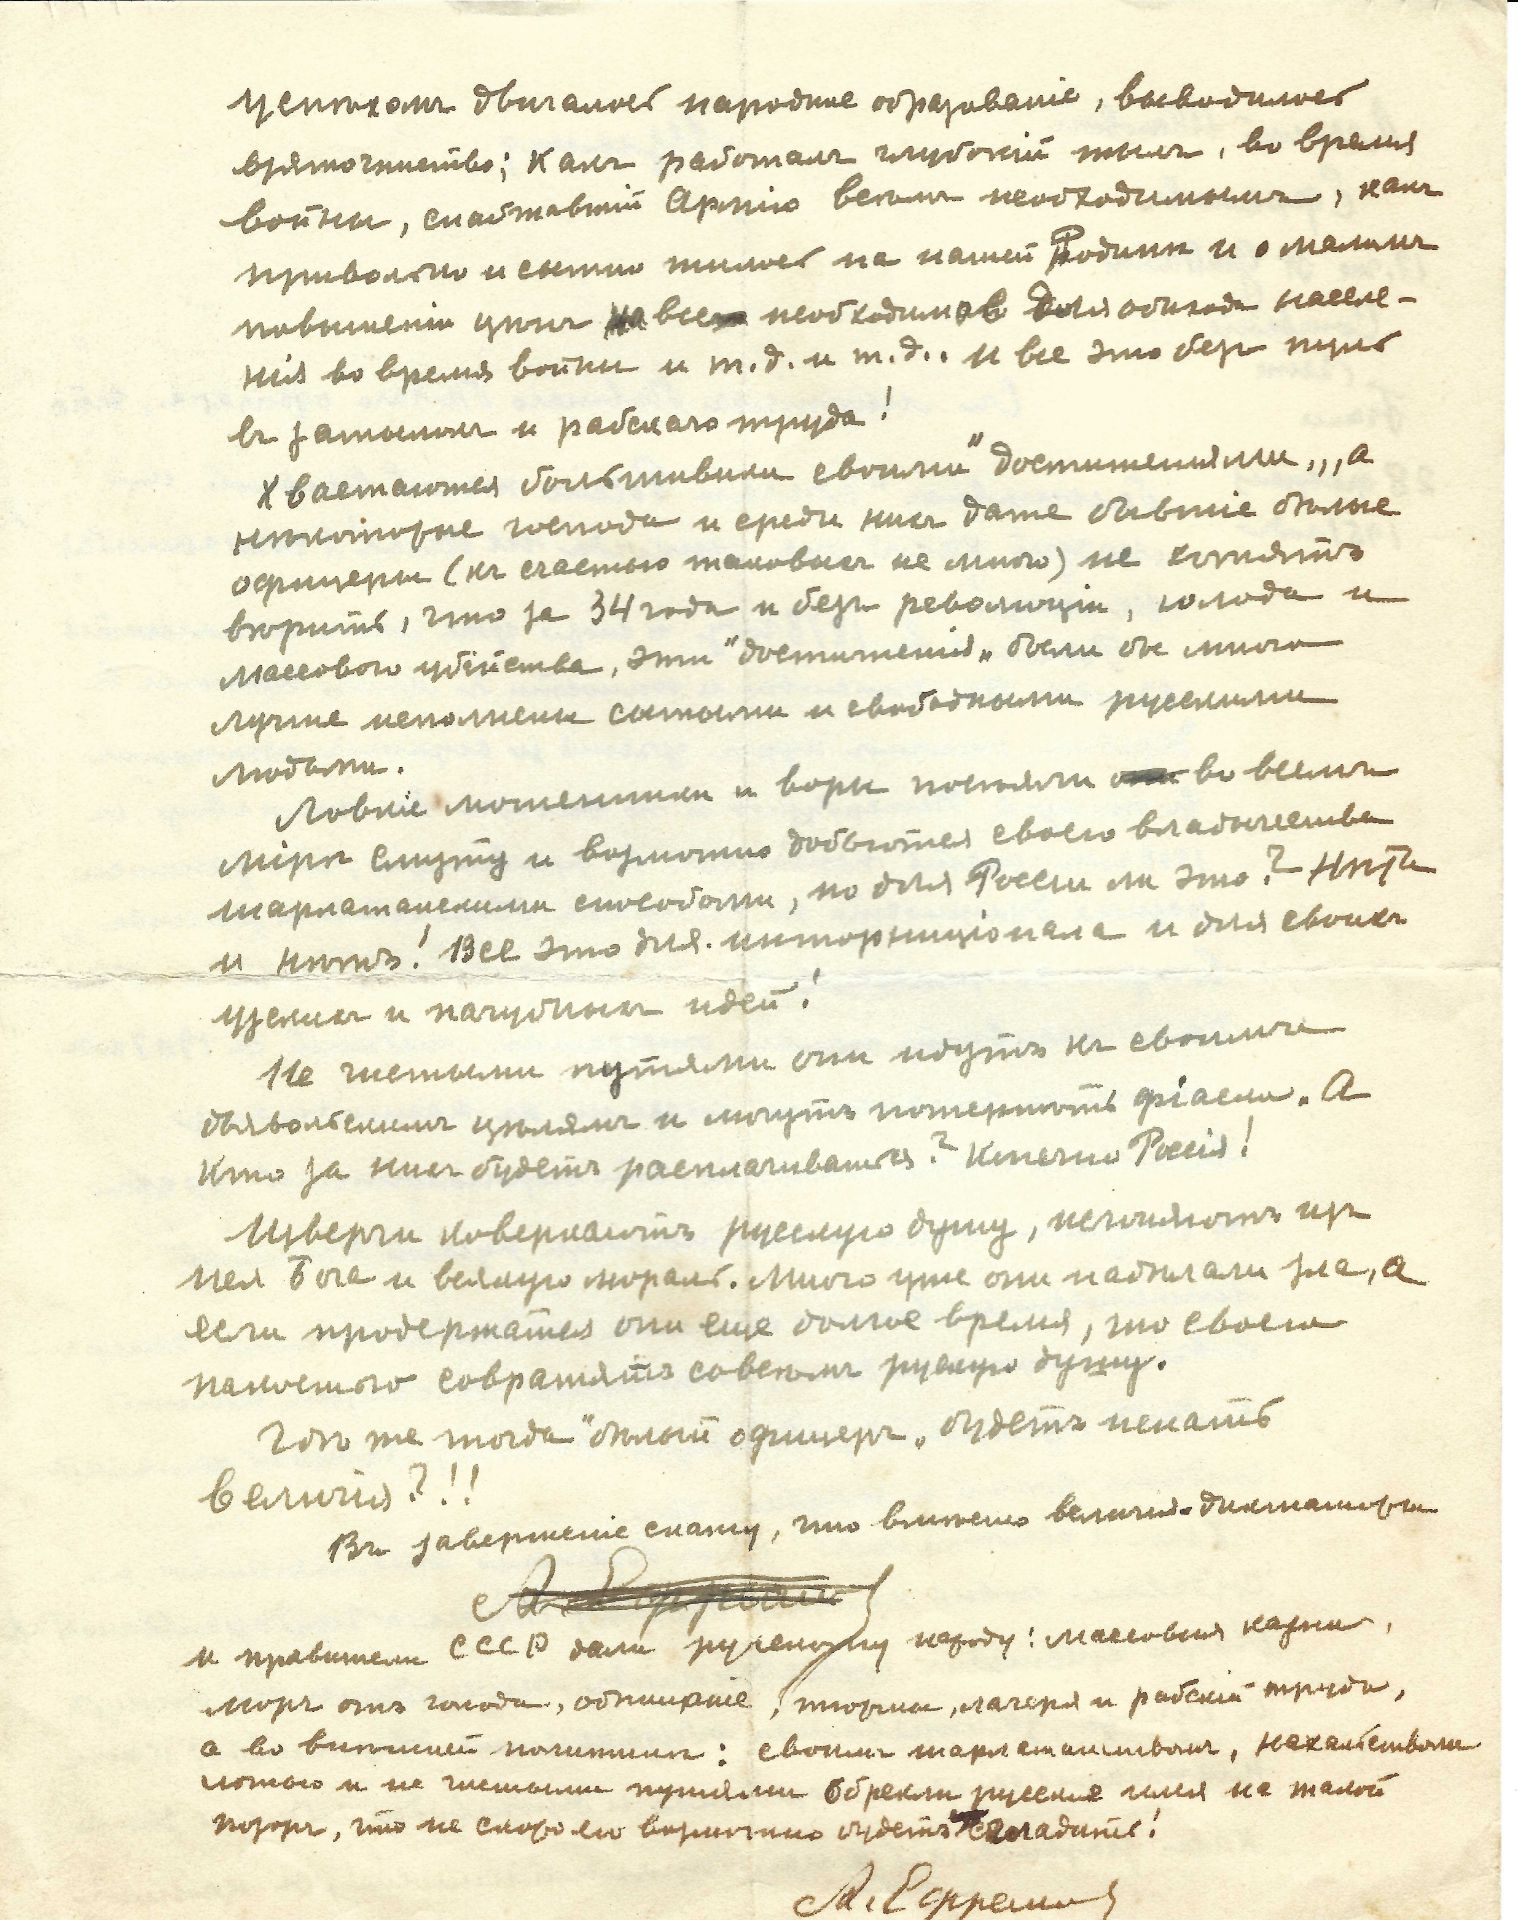 успѣхомъ двигалось народное образованіе, выводилось
взяточничество; какъ работалъ глубокій тылъ, во время
войны, снабжавшій Армію всѣмъ необходимымъ, какъ
привольно и сытно жилось на нашей Родинѣ и о маломъ
повышеніи цѣнъ на все необходимое для обихода населе-
нія во время войны и т.д. и т.д.. И все это безъ пуль
въ затылокъ и рабскаго труда!
Хвастаются большевики своими "достиженіями", а
нѣкоторые господа и среди нихъ даже бывшіе бѣлые
офицеры (къ счастью таковыхъ не много) не хотятъ
вѣрить, что за 34 года и безъ революціи, голода и
массового убійства, эти "достиженія" были бы много
лучше исполнены сытыми и свободными русскими
людьми.
Ловкіе мошенники и воры посѣяли во всемъ
мірѣ смуту и возможно добьются своего владычества
шарлатанскими способами, но для Россіи ли это? Нѣтъ
и нѣтъ! Все это для интернаціонала и для своихъ
узкихъ и пагубныхъ идей!
Не чистыми путями они идутъ къ своимъ
дьявольскимъ цѣлямъ и могутъ потерпѣть фіаско. А
кто за нихъ будетъ расплачиваться? Конечно Россія!
Изверги коверкаютъ русскую душу, изгоняютъ изъ
нея Бога и всякую мораль. Много уже они надѣлали зла, а
если продержатся они еще долгое время, то своею
пакостью совратятъ совсѣмъ русскую душу.
Гдѣ же тогда "бѣлый офицеръ" будетъ искать
величія?!!
Въ завершеніе скажу, что вмѣсто величія диктаторы
и правители СССР дали русскому народу: массовыя казни,
моръ отъ голода, обнищаніе, тюрьмы, лагеря и рабскій трудъ,
а во внѣшней политикѣ: своимъ шарлатанствомъ, нахальствомъ
ложью и не чистыми путями обрекли русское имя на такой
позоръ, что не скоро его возможно будетъ сгладить!
А. Ефремовъ